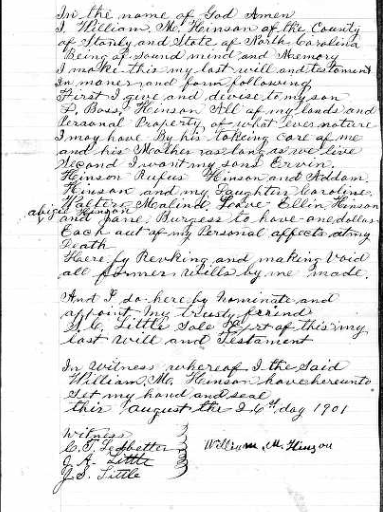 In the name of God Amen
I, William, M, Hinson of the County
of Stanly and State of North Carolina
Being of sound mind and Memory
I make this my last will and testament
In maner and form following
First I give and devise to my son
Bossy Hinson All of my lands and
Personal Property of what ever nature
I may have By his takeing care of me
and his Mother as long as we live
Second I want my sons Ervin.
Hinson Rufus Hinson and Addam.
Hinson and my Daughters Caroline
Walters Malind, Love Ellin, Hinson
abigo Hinson
and jane, Burgess to have one dollar
Each out of my Personal affects at my
Death
Here, by Revoking and making void
all former wills by me made.
And I do here by Nominate and
appoint my trusty friend
Little Sole of this my
last Will and Testament
In Witness whereof I the said
William, M, Hinson have hereunto
set my hand and seal
this august the 26th day 1901
Witness
C. T. Ledbetter
J. A. Little
J. S. Little
William M Hinson